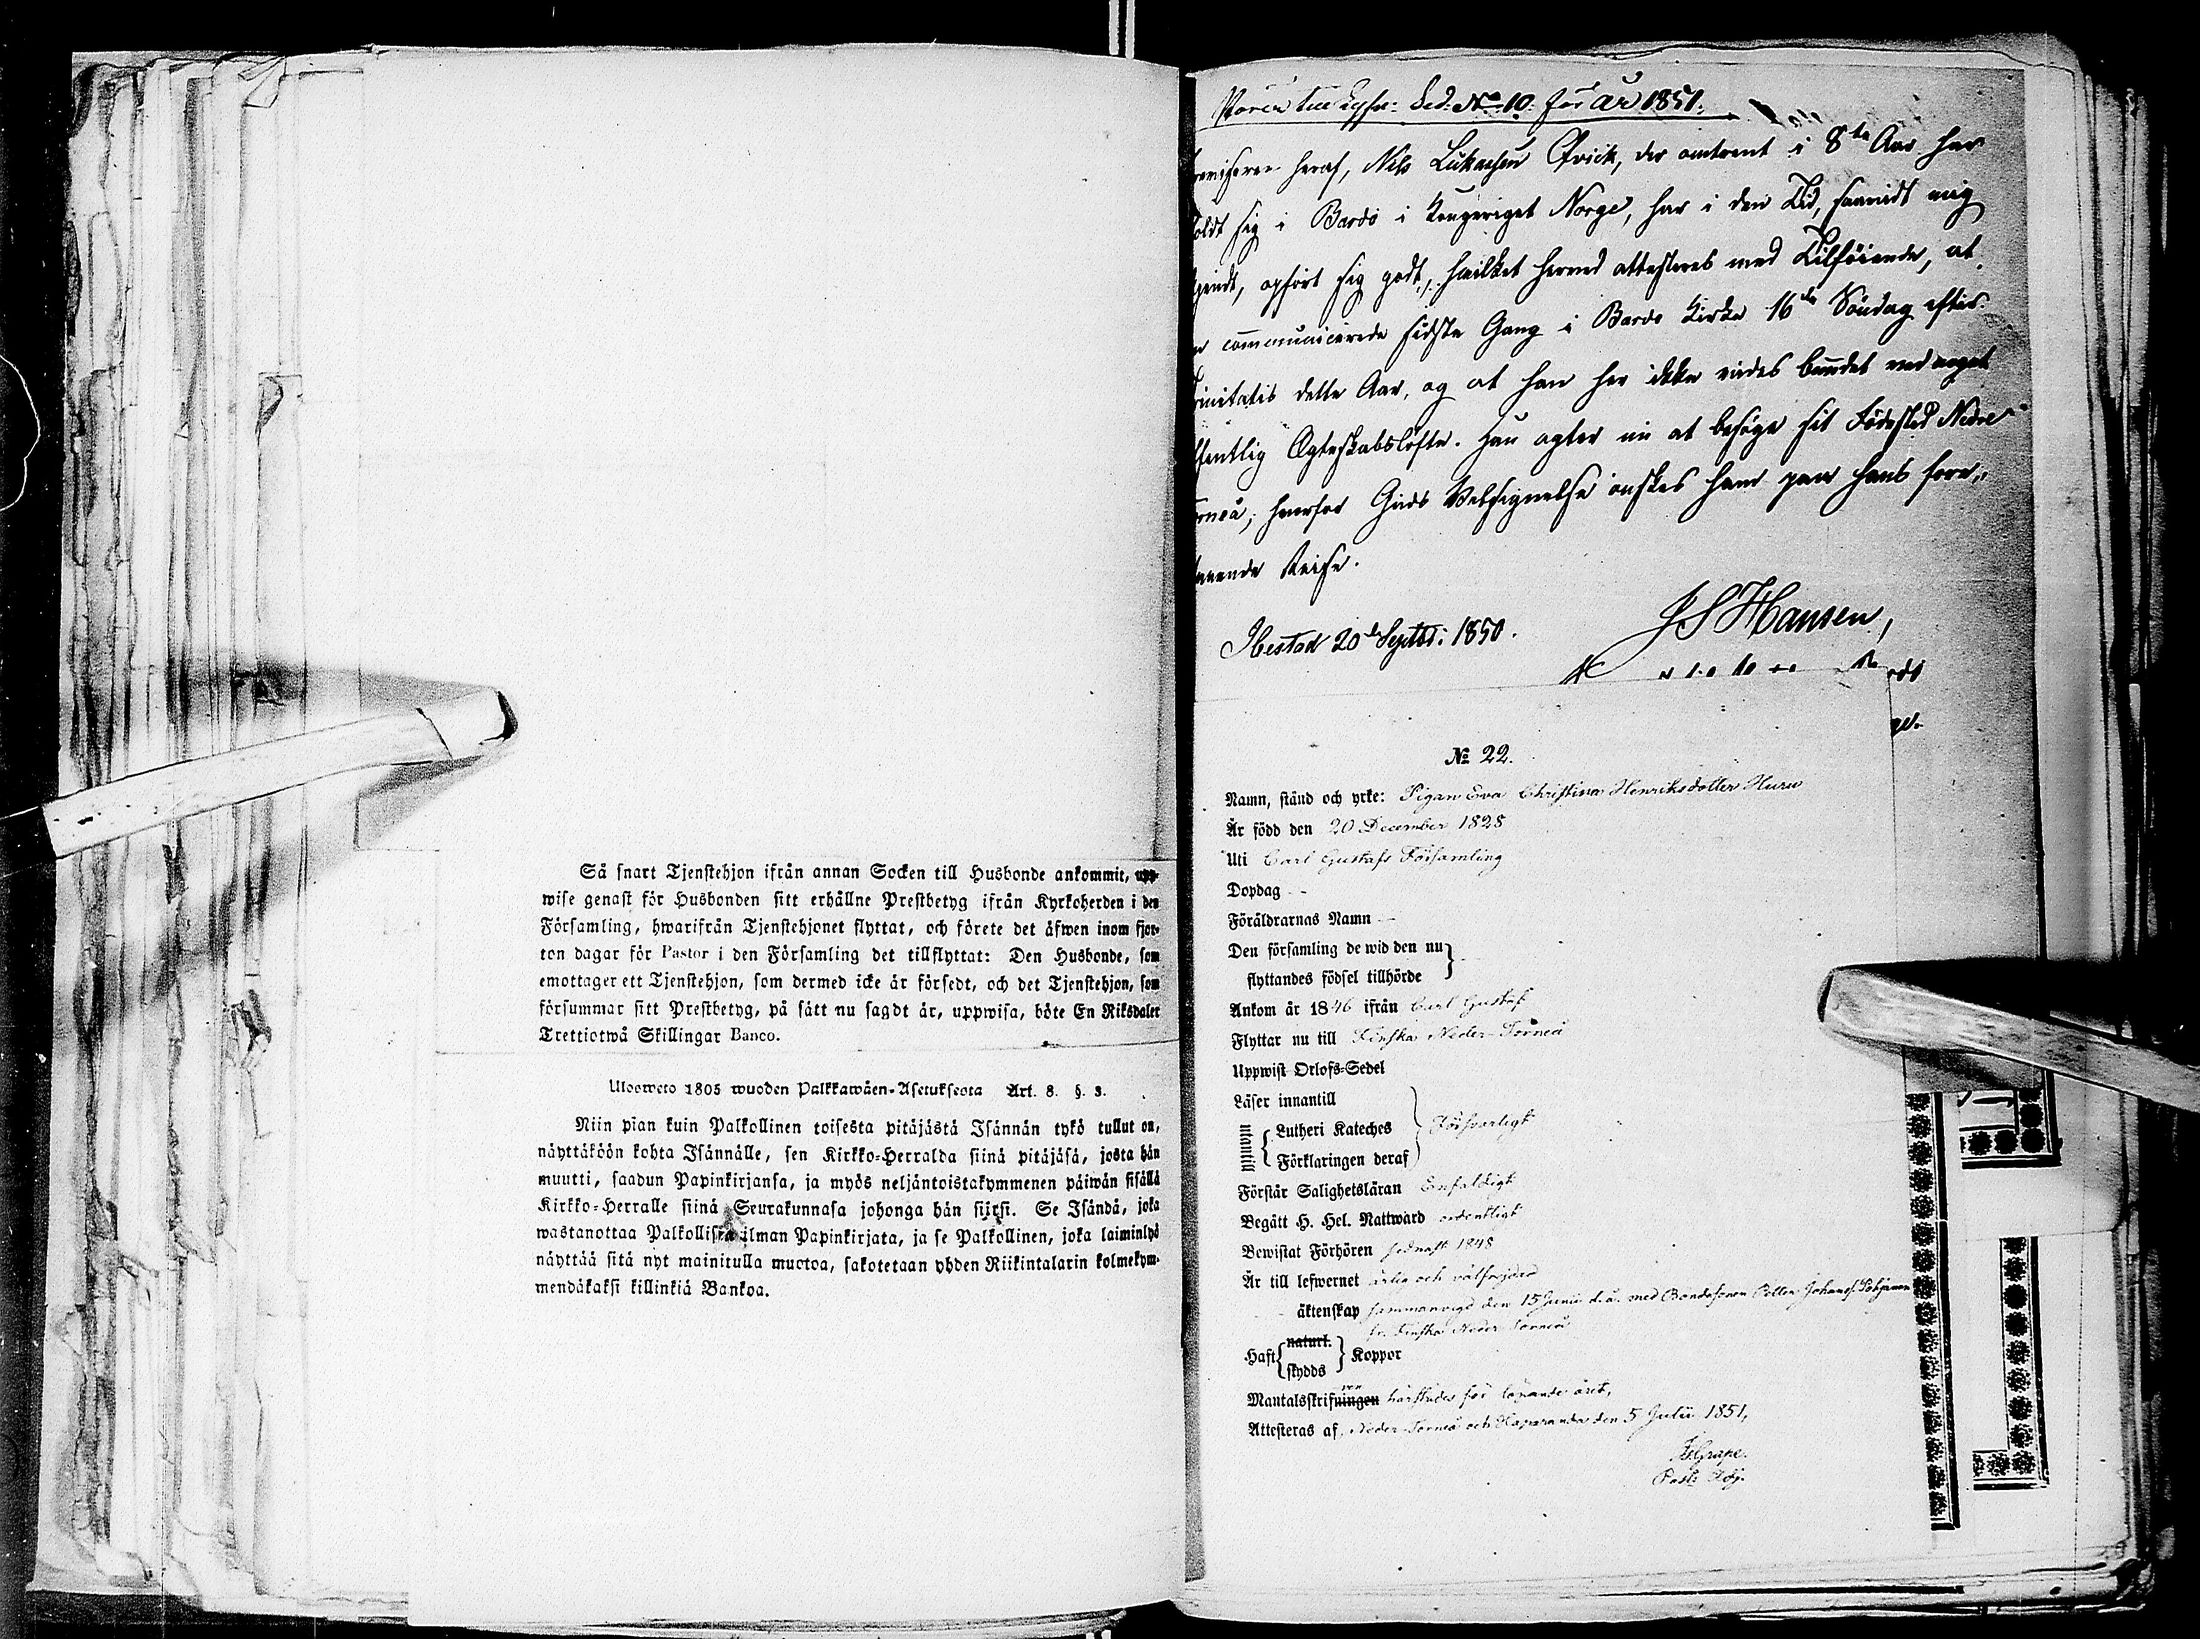 Så snart Tjenstehjon ifrån annan Socken till Husbonde ankommit, upp-
wise genast för Husbonden sitt erhållne Prestbetyg ifrån Kyrkoherden i den
Församling, hwarifrån Tjenstehjonet flyttat, och förete det äfwen inom fjor-
ton dagar för Pastor i den Församling det tillflyttat: Den Husbonde, som
emottager ett Tjenstehjon, som dermed icke är försedt, och det Tjenstehjon, som
försummar sitt Prestbetyg, på sätt nu sagdt är, uppwisa, böte En Riksdaler
Trettiotwå Skillingar Banco.
Ulosweto 1805 wuoden Palkkawäen-Asetuksesta Art. 8. §. 3.
Niin pian kuin Palkollinen toisesta pitäjästä Isännän tykö tullut on,
näyttäköön kohta Isännälle, sen Kirkko-Herralda siinä pitäjäsä, josta hän
muutti, saadun Papinkirjansa, ja myös neljäntoistakymmenen päiwän sisällä
Kirkko-Herralle siinä Seurakunnasa johonga hän siirsi. Se Isändä, joka
wastanottaa Palkollisen ilman Papinkirjata, ja se Palkollinen, joka laiminlyö
näyttää sitä nyt mainitulla muotoa, sakotetaan yhden Riikintalarin kolmekym-
mendäkaksi killinkiä Bankoa.
Sed: No 10. för år 1851.
heraf, Nils Lukasen Qvick, der omtrent i 8te Aar har
sig i Bardo i Kongeriget Norge, har i den Tid, saavidt mig
opført sig godt, hvilket herved attesteres med Tilføiende, at
communicerede sidste Gang i Bardo Kirke 16de Søndag efter
Trinitatis dette Aar, og at han her ikke vides bundet ved noget
offentlig Ægteskabsløfte. Han agter nu at besøge sit Fødested Nedre
Torneå, hvorfor Guds Velsignelse ønskes ham paa hans fore-
Reise.
Ibestad 20de Septbr: 1850.
J S Hansen,
No 22.
Namn, stånd och yrke: Pigan Eva Christina Henriksdotter Huru
Är född den 20 December 1828
Uti Carl Gustafs Församling
Dopdag -
Föräldrarnas Namn -
Den församling de wid den nu
flyttandes födsel tillhörde -
Ankom år 1846 ifrån Carl Gustaf
Flyttar nu till Finska Neder-Torneå
Uppwist Orlofs-Sedel
Läser innantill
utantill Lutheri Kateches Försvarligt
Förklaringen deraf
Förstår Salighetsläran Enfaldigt
Begått H. Hel. Nattward ordentligt
Bewistat Förhören sednast 1848
Är till lefwernet ärlig och välfrejdad
äktenskap sammanvigd den 15 Junii d.å. med Bondesonen Petter Johans. Pohjanen
fr. Finska Neder Torneå
Haft naturl. skydds Koppor
Mantalsskrifwen härstädes för löpande året,
Attesteras af, Neder-Torneå och Haparanda den 5 Julii 1851,
Grape.
Past: Adj.